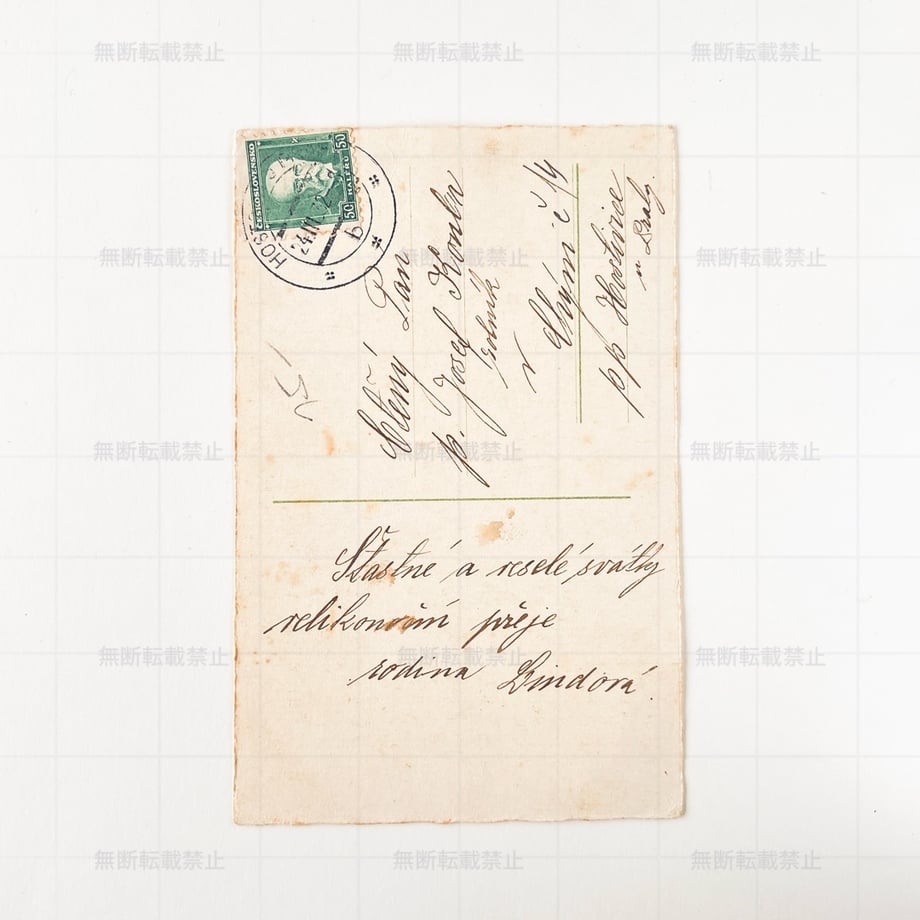 ČESKOSLOVENSKO
50 HALÉŘŮ 50
HOST
24.III.32
b
Ctěný Pan
p. Josef
rolník
v Chýni č 14
pp Hostivice
u Prahy.
Šťastné a veselé svátky
velikonoční přeje
rodina Lindová.
無断転載禁止 無断転載禁止 無断転載禁止
無断転載禁止 無断転載禁止 無断転載禁止
無断転載禁止 無断転載禁止 無断転載禁止
無断転載禁止 無断転載禁止 無断転載禁止
無断転載禁止 無断転載禁止 無断転載禁止